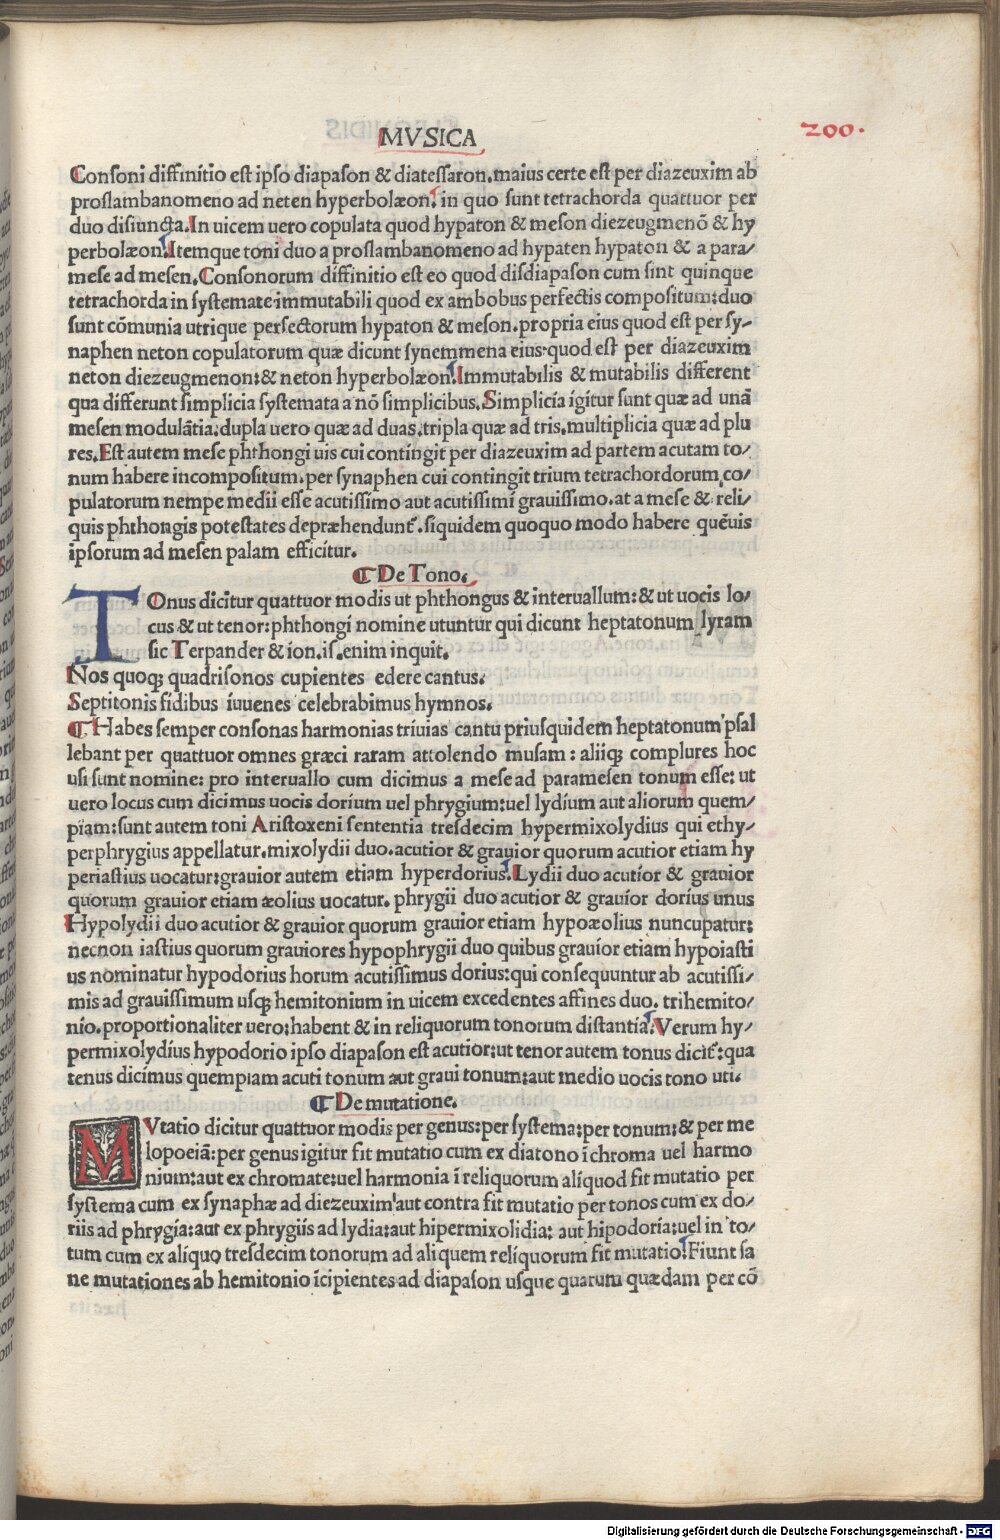 MVSICA
200.
Consoni diffinitio est ipso diapason & diatessaron. maius certe est per diazeuxim ab
proslambanomeno ad neten hyperbolæon. in quo sunt tetrachorda quattuor per
duo disiuncta. In uicem uero copulata quod hypaton & meson diezeugmenō & hy
perbolæon. Itemque toni duo a proslambanomeno ad hypaten hypaton & a para/
mese ad mesen. Consonorum diffinitio est eo quod disdiapason cum sint quinque
tetrachorda in systemate immutabili quod ex ambobus perfectis compositum: duo
sunt cōmunia utrique persectorum hypaton & meson. propria eius quod est per sy/
naphen neton copulatorum quæ dicunt synemmena eius quod est per diazeuxim
neton diezeugmenon: & neton hyperbolæon. Immutabilis & mutabilis different
qua differunt simplicia systemata a nō simplicibus. Simplicia igitur sunt quæ ad unā
mesen modulātia: dupla uero quæ ad duas, tripla quæ ad tris, multiplicia quæ ad plu
res. Est autem mese phthongi uis cui contingit per diazeuxim ad partem acutam to/
num habere incompositum. per synaphen cui contingit trium tetrachordorum co/
pulatorum nempe medii esse acutissimo aut acutissimi grauissimo. at a mese & reli/
quis phthongis potestates depræhendunt̃. siquidem quoquo modo habere quēuis
ipsorum ad mesen palam efficitur.
¶ De Tono.
TOnus dicitur quattuor modis ut phthongus & interuallum: & ut uocis lo/
cus & ut tenor: phthongi nomine utuntur qui dicunt heptatonum lyram
sic Terpander & ion. is. enim inquit.
Nos quoqꝫ quadrisonos cupientes edere cantus.
Septitonis fidibus iuuenes celebrabimus hymnos.
¶ Habes semper consonas harmonias triuias cantu priusquidem heptatonum psal
lebant per quattuor omnes græci raram attolendo musam: aliiqꝫ complures hoc
usi sunt nomine: pro interuallo cum dicimus a mese ad paramesen tonum esse: ut
uero locus cum dicimus uocis dorium uel phrygium: uel lydium aut aliorum quem/
piam: sunt autem toni Aristoxeni sententia tresdecim hypermixolydius qui et hy/
perphrygius appellatur. mixolydii duo. acutior & grauior quorum acutior etiam hy
periastius uocatur: grauior autem etiam hyperdorius. Lydii duo acutior & grauior
quorum grauior etiam æolius uocatur. phrygii duo acutior & grauior dorius unus
Hypolydii duo acutior & grauior quorum grauior etiam hypoæolius nuncupatur:
necnon iastius quorum grauiores hypophrygii duo quibus grauior etiam hypoiasti
us nominatur hypodorius horum acutissimus dorius: qui consequuntur ab acutissi/
mis ad grauissimum usqꝫ hemitonium in uicem excedentes affines duo. trihemito/
nio. proportionaliter uero: habent & in reliquorum tonorum distantia. Verum hy/
permixolydius hypodorio ipso diapason est acutior: ut tenor autem tonus dicit̃: qua
tenus dicimus quempiam acuti tonum aut graui tonum: aut medio uocis tono uti.
¶ De mutatione.
MVtatio dicitur quattuor modis per genus: per systema: per tonum: & per me
lopoeiā: per genus igitur fit mutatio cum ex diatono ī chroma uel harmo
nium: aut ex chromate: uel harmonia ī reliquorum aliquod fit mutatio per
systema cum ex synaphæ ad diezeuxim aut contra fit mutatio per tonos cum ex do/
riis ad phrygia: aut ex phrygiis ad lydia: aut hipermixolidia: aut hipodoria: uel in to/
tum cum ex aliquo tresdecim tonorum ad aliquem reliquorum fit mutatio. Fiunt sa
ne mutationes ab hemitonio īcipientes ad diapason usque quarum quædam per cō
Digitalisierung gefördert durch die Deutsche Forschungsgemeinschaft - DFG